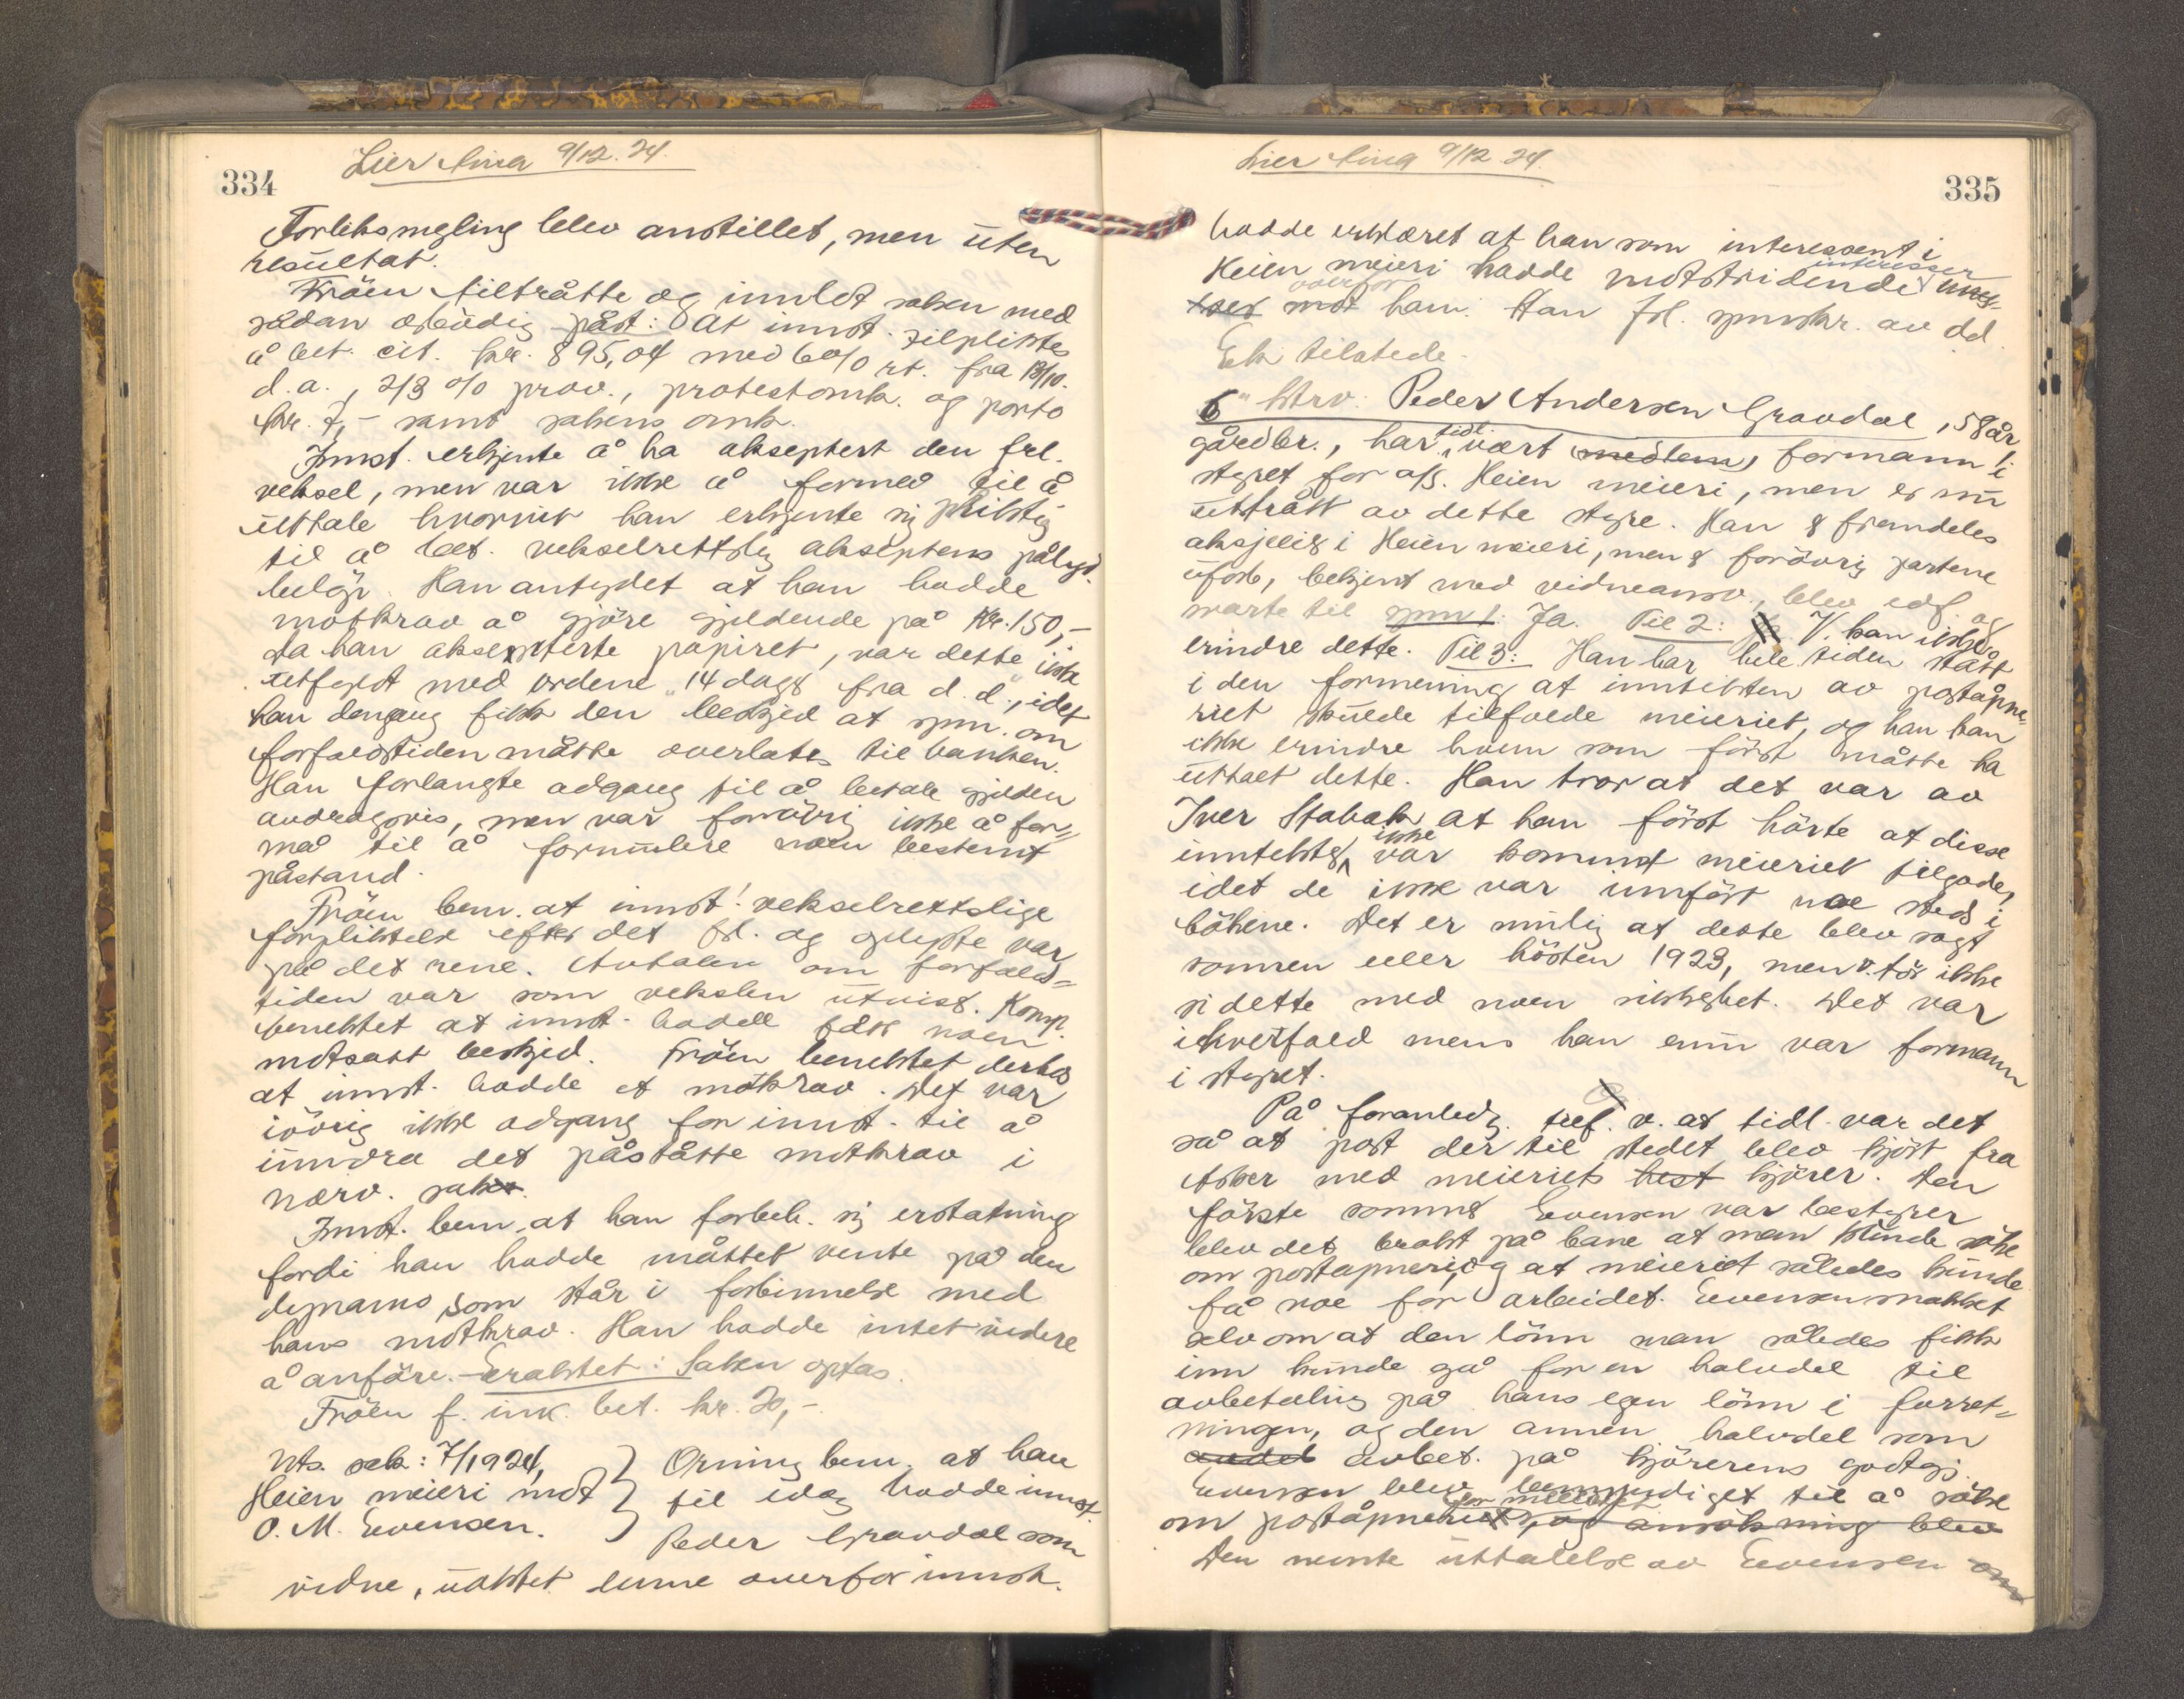 334
Lier ting 9/12. 24.
Forliksmegling blev anstillet, men uten
resultat.
Fröen tiltrådte og innlot saken med
sådan östenüdig påst: At innst. tilpliktes
å bet. cit. kr. 895,04 med 6% rt. fra 13/10.
d.a., 2/3 % prov., protestomk. og porto
kr. 7,- samt sakens omk.
Innst. erkjente å ha akseptert den frl.
veksel, men var ikke å formå til å
uttale hvorvidt han erkjente sig pliktig
til å bet. vekselrettslig akseptens pålyd.
belöp. Han antydet at han hadde
motkrav å gjöre gjeldende på kr. 150,-
da han aksepterte papiret, var dette ikke
utfyldt med ordene "14 dage fra d.d.", idet
han dengang fikk den beskjed at spm. om
forfaldstiden måtte overlates til banken.
Han forlangte adgang til å betale gjelden
avdragsvis, men var forövrig ikke å for=
må til å formulere noen bestemt
påstand.
Fröen bem. at innst! vekselrettslige
forpliktelse efter det frl. og oplyste var
på det rene. Avtalen om forfalds=
tiden var som vekslen utviser. Komp.
benektet at innst. hadde fått noen
motsatt beskjed. Fröen benektet derhos
at innst. hadde et motkrav. Det var
iövrig ikke adgang for innst. til å
inndra det påståtte motkrav i
nærv. sak.
Innst. bem. at han forbeh. sig erstatning
fordi han hadde måttet vente på den
dynamo, som står i forbinnelse med
hans motkrav. Han hadde intet videre
å anföre. - Eraktet: Saken optas.
Fröen f. ink. bet. kr. 20,-.
Nts. sak: 7/1924,
Heien meieri mot
O. M. Evensen.
Orning bem. at han
til idag hadde innst.
Peder Gravdal som
vidne, uaktet denne overfor innst.
335
Lier ting 9/12 24.
hadde erklæret at han som interessent i
Heien meieri hadde motstridende interesser
overfor ham. Han frl. spmskr. av dd.
Ek tilstede.
6" Strv: Peder Andersen Gravdal, 58 år
gårdbr., har tidl. vært medlem, formann i
styret for a/s. Heien meieri, men er nu
uttrått av dette styre. Han er fremdeles
aksjeeier i Heien meieri, men er forövrig partene
uforb., bekjent med vidneansv., blev edf. og
svarte til spm 1: Ja. Til 2: V. kan ikke
erindre dette. Til 3: Han har hele tiden stått
i den formening at inntekten av poståpne=
riet skulde tilfalde meieriet, og han kan
ikke erindre hvem som först måtte ha
uttalt dette. Han tror at det var av
Iver Stabæk at han först hörte at disse
inntekter ikke var kommet meieriet tilgode,
idet de ikke var innfört noe sted i
bökene. Det er mulig at dette blev sagt
somren eller hösten 1923, men v. tör ikke
si dette med noen sikkerhet. Det var
ihvertfald mens han ennu var formann
i styret.
På foranledg. tilf. v. at tidl. var det
så at post der til stedet blev kjört fra
Asker med meieriets hest kjörer. Den
förste sommer Evensen var bestyrer
blev det brakt på bane at man kunde söke
om poståpneri, og at meieriet således kunde
få noe for arbeidet. Evensen snakket
selv om at den lönn man således fikk
inn kunde gå for en halvdel til
avbetaling på hans egen lönn i forret=
ningen, og den annen halvdel som
andel avbet. på kjörerens godtgj.
Evensen blev bemyndiget til å söke
om poståpneriet for meieriet, og ansökning blev
Den nevnte uttalelse av Evensen om